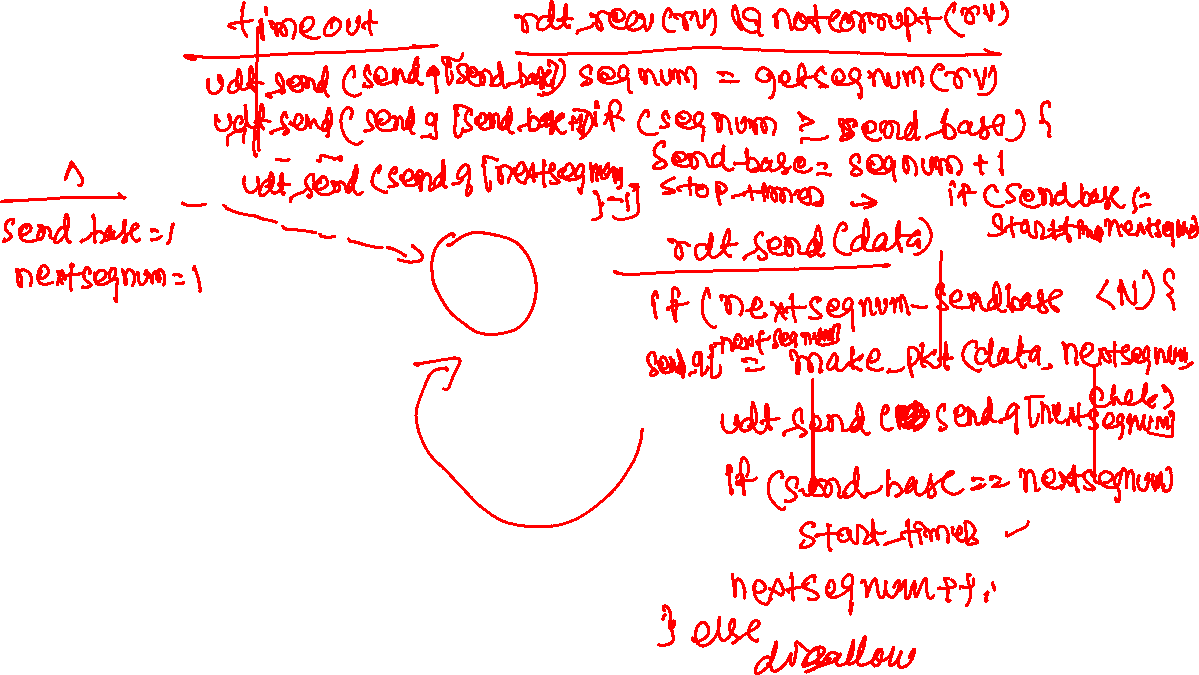 timeout
udt_send (sendq[send_base])
udt_send (sendq [send_base+1])
udt_send (sendq [nextseqnum
-1])
rdt_recv (rv) && notcorrupt (rv)
seqnum = getseqnum(rv)
if (seqnum ≥ send_base) {
send_base = seqnum + 1
stop_timer → if (sendbase !=
}
start_tim nextseqnu
Λ
send_base = 1
nextseqnum = 1
rdt_send (data)
if (nextseqnum - sendbase < N) {
sendq[nextseqnum] = make_pkt (data, nextseqnum,
chek)
udt_send (sendq[nextseqnum]
if (send_base == nextseqnum
start_timer
nextseqnum++;
} else
disallow